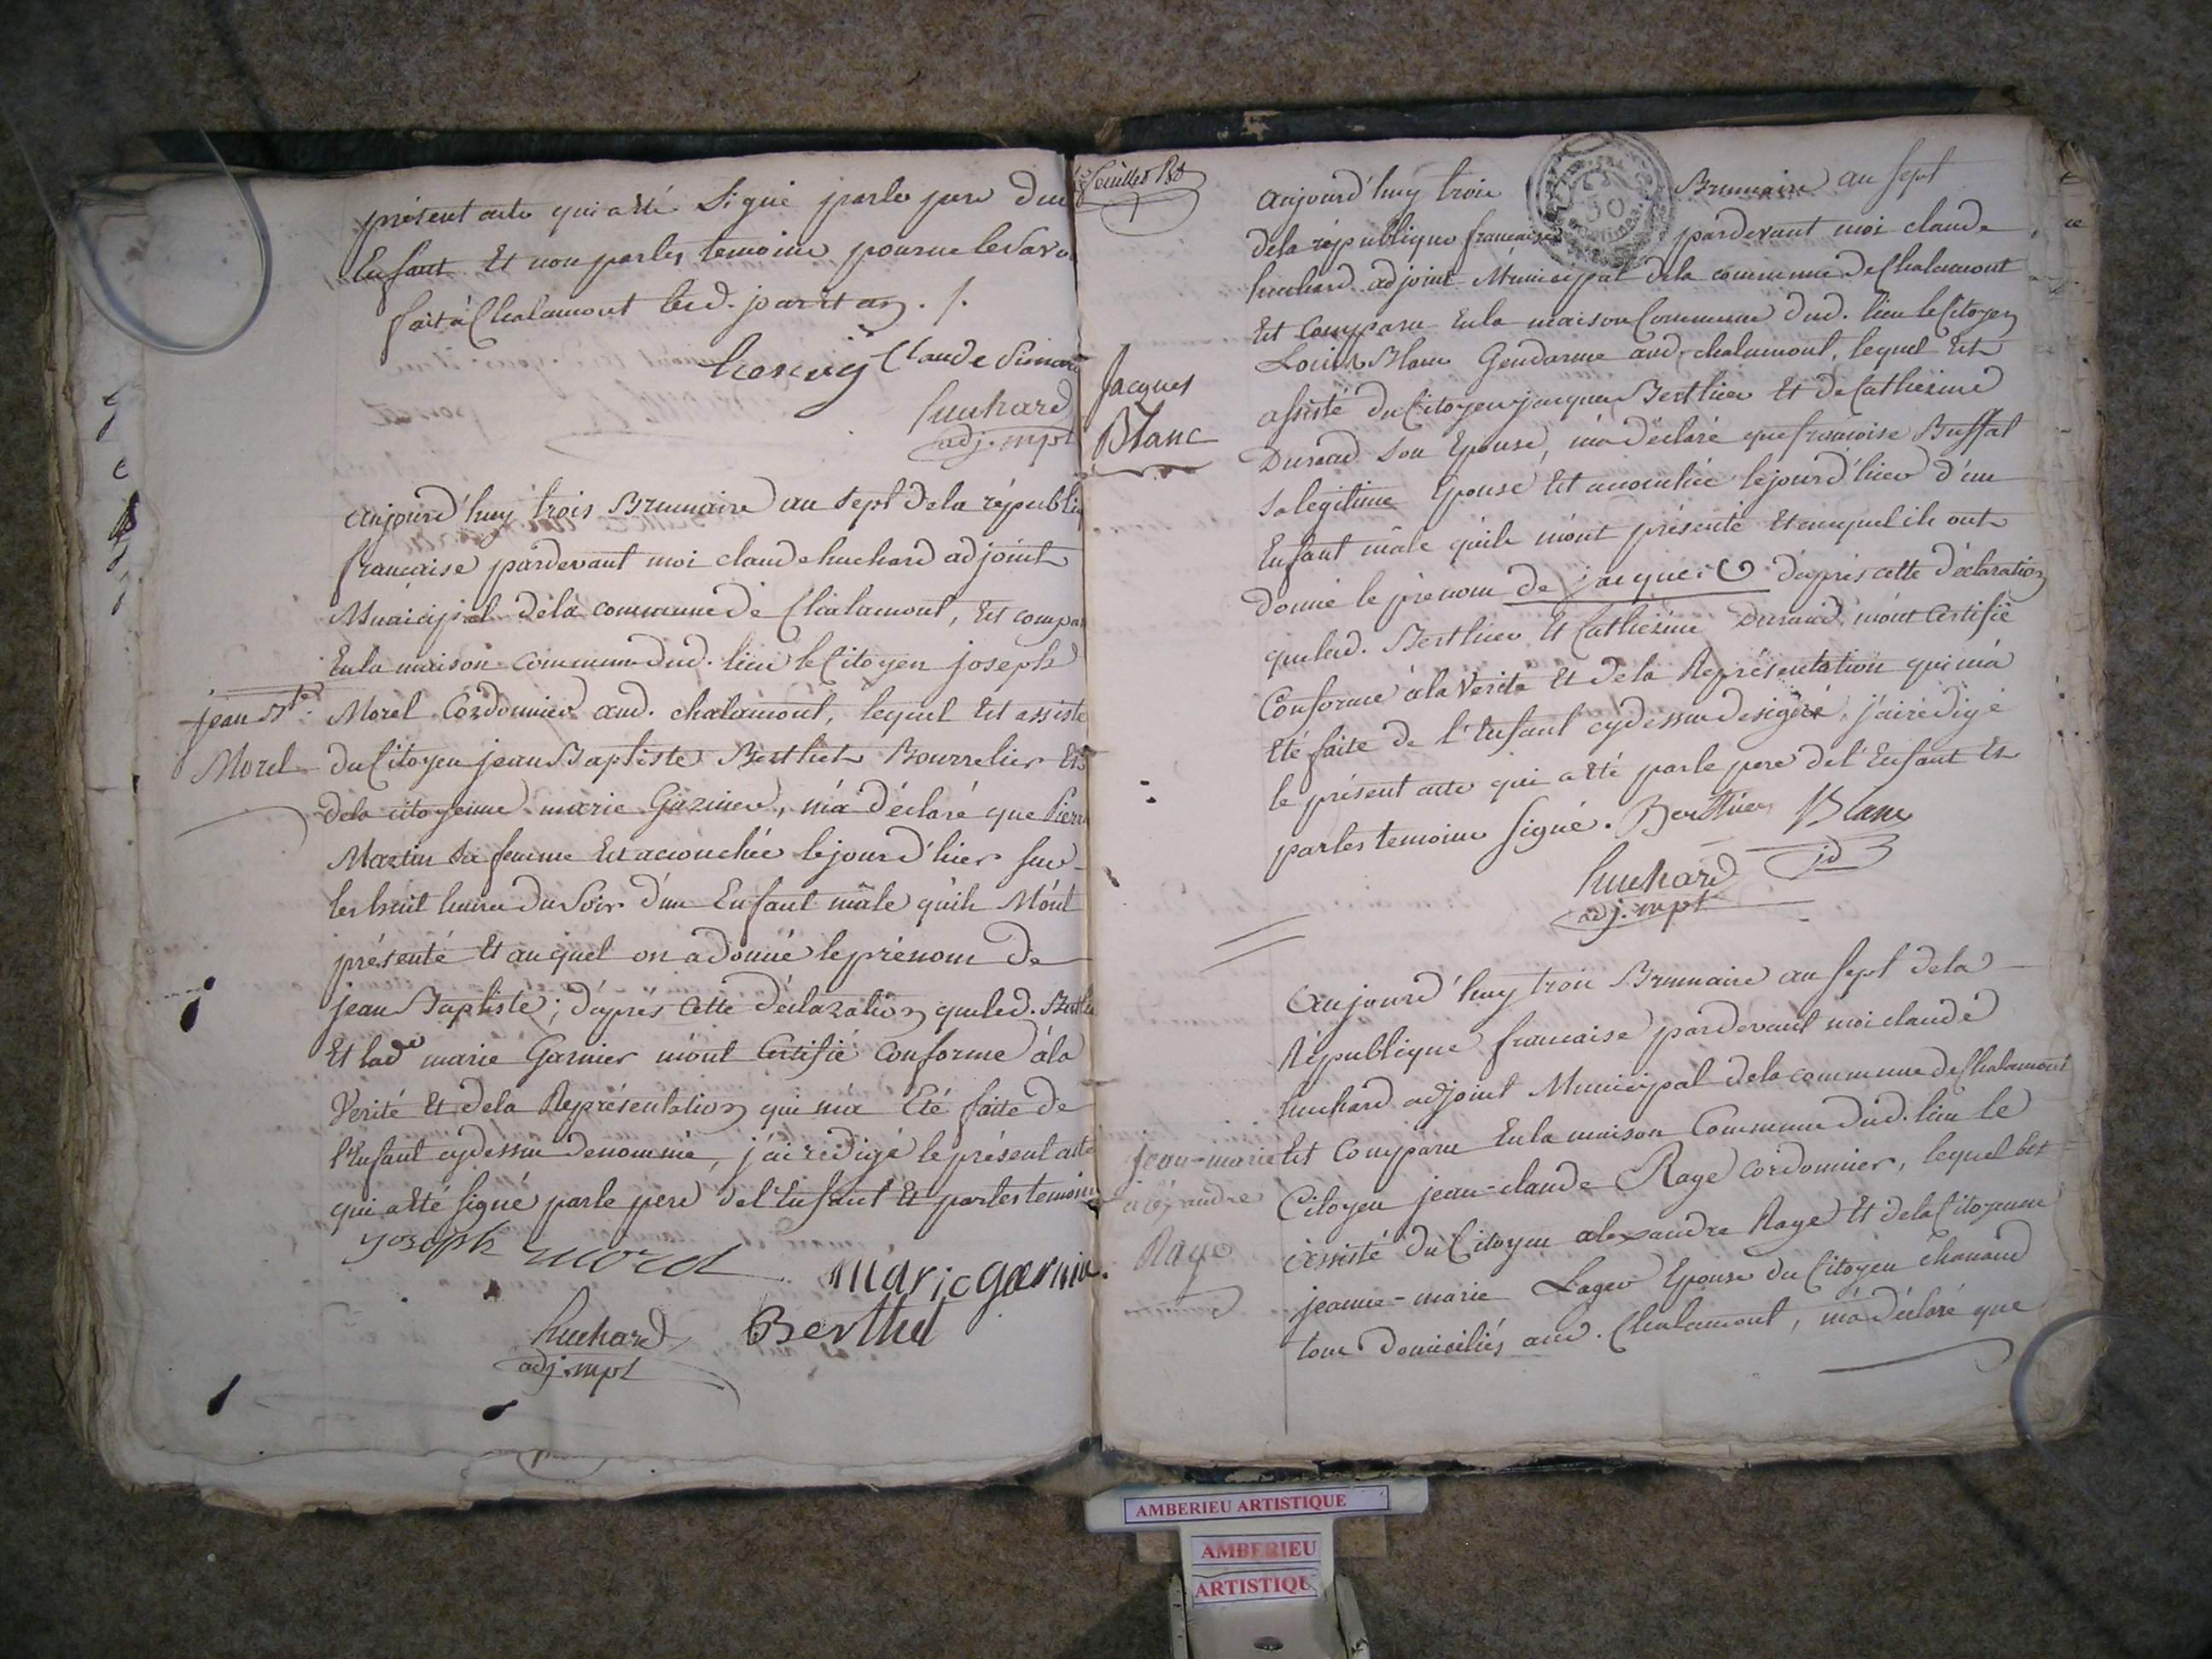 présent acte qui a été Signé par le pere dud
Enfant Et non par les temoins pour ne le Savo
fait à Chalamont led. jour et an ./.
Claude Simard
huchard
adj. mpl
aujourd'huy trois Brumaire an sept de la républiq
francaise pardevant moi claude huchard adjoint
Municipal de la commune de Chalamont, Est compa
En la maison commune dud. lieu le Citoyen joseph
jean Bte.
Morel
Morel Cordonnier aud. chalamont, lequel Est assisté
du Citoyen jean Baptiste Berthet Bourrelier Et
de la citoyenne marie Garnier, m'a déclaré que Pierr
Martin sa femme Est accouchée le jour d'hier sur
les huit heures du Soir d'un Enfant mâle qu'ils M'ont
présenté Et auquel on a donné le prénom de
jean Baptiste; d'après cette déclaration que led. Berthe
Et lade marie Garnier m'ont Certifié Conforme à la
Verité Et de la Représentation qui m'a Eté faite de
l'Enfant cydessus denommé, j'ai redigé le présent acte
qui a été signé par le pere de l'Enfant Et par les temoins
joseph morel
marie garnie.
huchard
adj. mpl
Berthet
feuillet
aujourd'huy trois Brumaire an sept
de la république francaise pardevant moi claude
huchard adjoint Municipal de la commune de Chalamont
Est Comparu En la maison Commune dud. lieu le Citoyen
Jacques
Blanc
Louis Blanc Gendarme aud. chalamont, lequel Est
assisté du Citoyen jacques Berthier Et de Catherine
Durand Son Epouse, m'a déclaré que francoise Buffat
Sa legitime Epouse Est accouchée le jour d'hier d'un
Enfant mâle qu'ils m'ont présenté Et auquel ils ont
donné le prénom de jacques d'après cette déclaration
que led. Berthier Et Catherine Durand m'ont Certifié
Conforme à la Verité Et de la Représentation qui m'a
Eté faite de l'Enfant cydessus designé, j'ai rédigé
le présent acte qui a été par le pere de l'Enfant Et
par les temoins signé. Berthier Blanc
huchard
adj. mpl
aujourd'huy trois Brumaire an sept de la
République francaise pardevant moi claude
huchard adjoint Municipal de la commune de Chalamont
jean-marie
aléxandre
Raye
Est Comparu En la maison Commune dud. lieu le
Citoyen jean-claude Raye cordonnier, lequel Est
assisté du Citoyen alexandre Raye Et de la Citoyenne
jeanne-marie Lager Epouse du Citoyen chanaud
tous domiciliés aud. Chalamont, m'a déclaré que
AMBERIEU ARTISTIQUE
AMBERIEU
ARTISTIQU